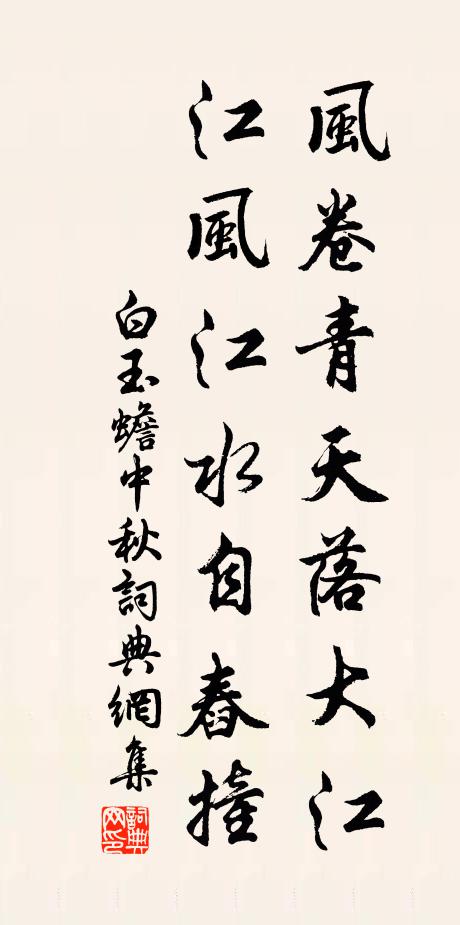 風卷青天落大江
江風江水自舂撞
白玉蟾中秋詞典網集
詞典网印